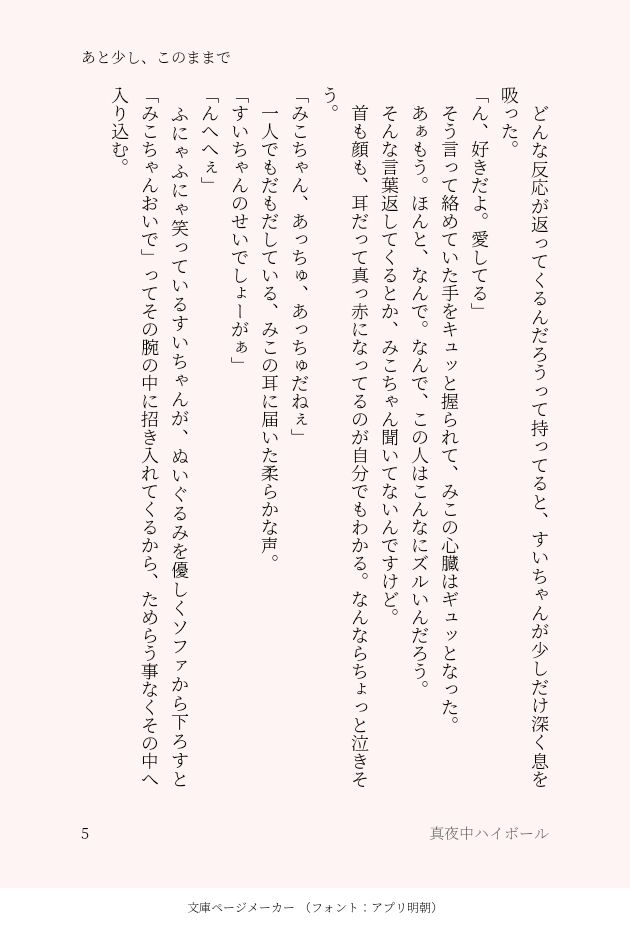 あと少し、このままで
どんな反応が返ってくるんだろうって持ってると、すいちゃんが少しだけ深く息を
吸った。
「ん、好きだよ。愛してる」
そう言って絡めていた手をキュッと握られて、みこの心臓はギュッとなった。
あぁもう。ほんと、なんで。なんで、この人はこんなにズルいんだろう。
そんな言葉返してくるとか、みこちゃん聞いてないんですけど。
首も顔も、耳だって真っ赤になってるのが自分でもわかる。なんならちょっと泣きそ
う。
「みこちゃん、あっちゅ、あっちゅだねぇ」
一人でもだもだしている、みこの耳に届いた柔らかな声。
「すいちゃんのせいでしょーがぁ」
「んへへぇ」
ふにゃふにゃ笑っているすいちゃんが、ぬいぐるみを優しくソファから下ろすと
「みこちゃんおいで」ってその腕の中に招き入れてくるから、ためらう事なくその中へ
入り込む。
5
真夜中ハイボール
文庫ページメーカー （フォント：アプリ明朝）